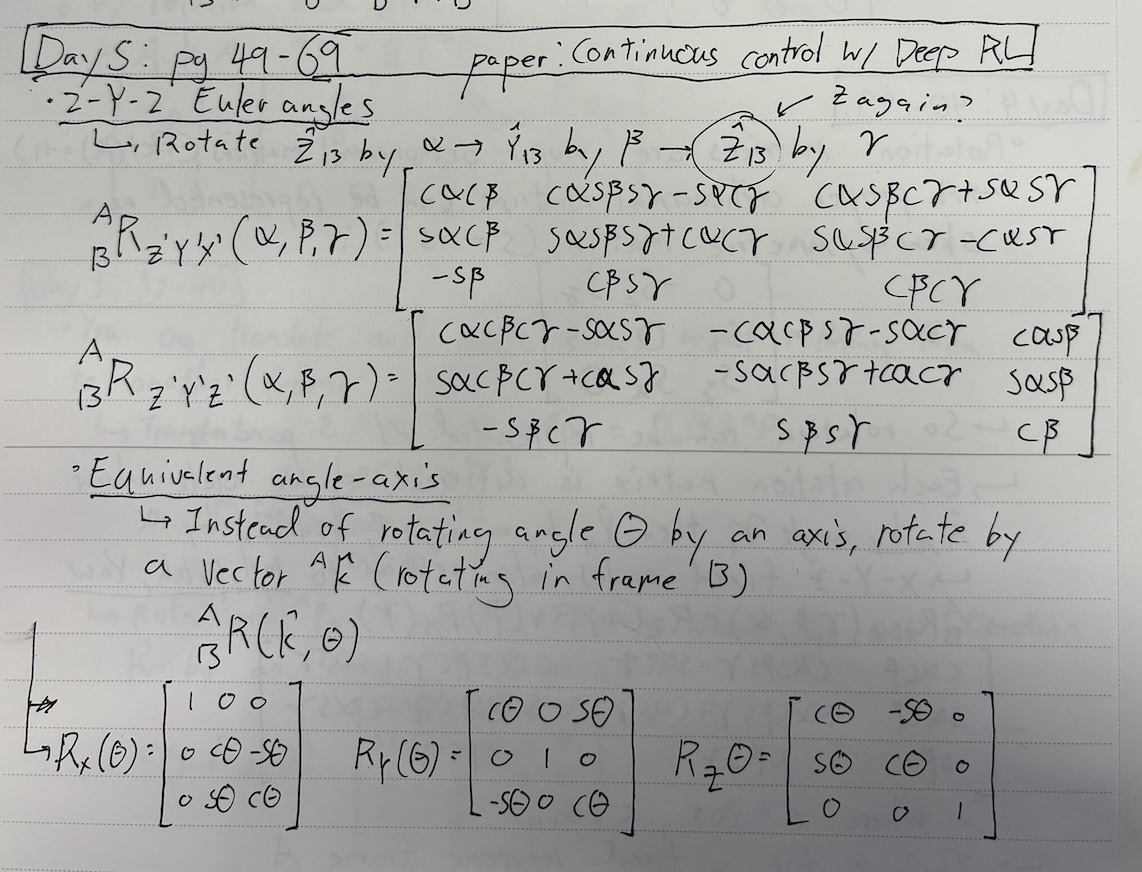 Day 5: pg 49-69 paper: Continuous control w/ Deep RL
· Z-Y-Z Euler angles
Z again?
↳ Rotate Ẑ_B by α → Ŷ_B by β → Ẑ_B by γ
ᴬ_B R_Z'Y'X' (α, β, γ) = [ cαcβ cαsβsγ-sαcγ cαsβcγ+sαsγ
sαcβ sαsβsγ+cαcγ sαsβcγ-cαsγ
-sβ cβsγ cβcγ ]
ᴬ_B R_Z'Y'Z' (α, β, γ) = [ cαcβcγ-sαsγ -cαcβsγ-sαcγ cαsβ
sαcβcγ+cαsγ -sαcβsγ+cαcγ sαsβ
-sβcγ sβsγ cβ ]
· Equivalent angle-axis
↳ Instead of rotating angle θ by an axis, rotate by
a vector ᴬK̂ (rotating in frame B)
ᴬ_B R(K̂, θ)
↳ R_x(θ) = [ 1 0 0
0 cθ -sθ
0 sθ cθ ]
R_Y(θ) = [ cθ 0 sθ
0 1 0
-sθ 0 cθ ]
R_Z θ = [ cθ -sθ 0
sθ cθ 0
0 0 1 ]